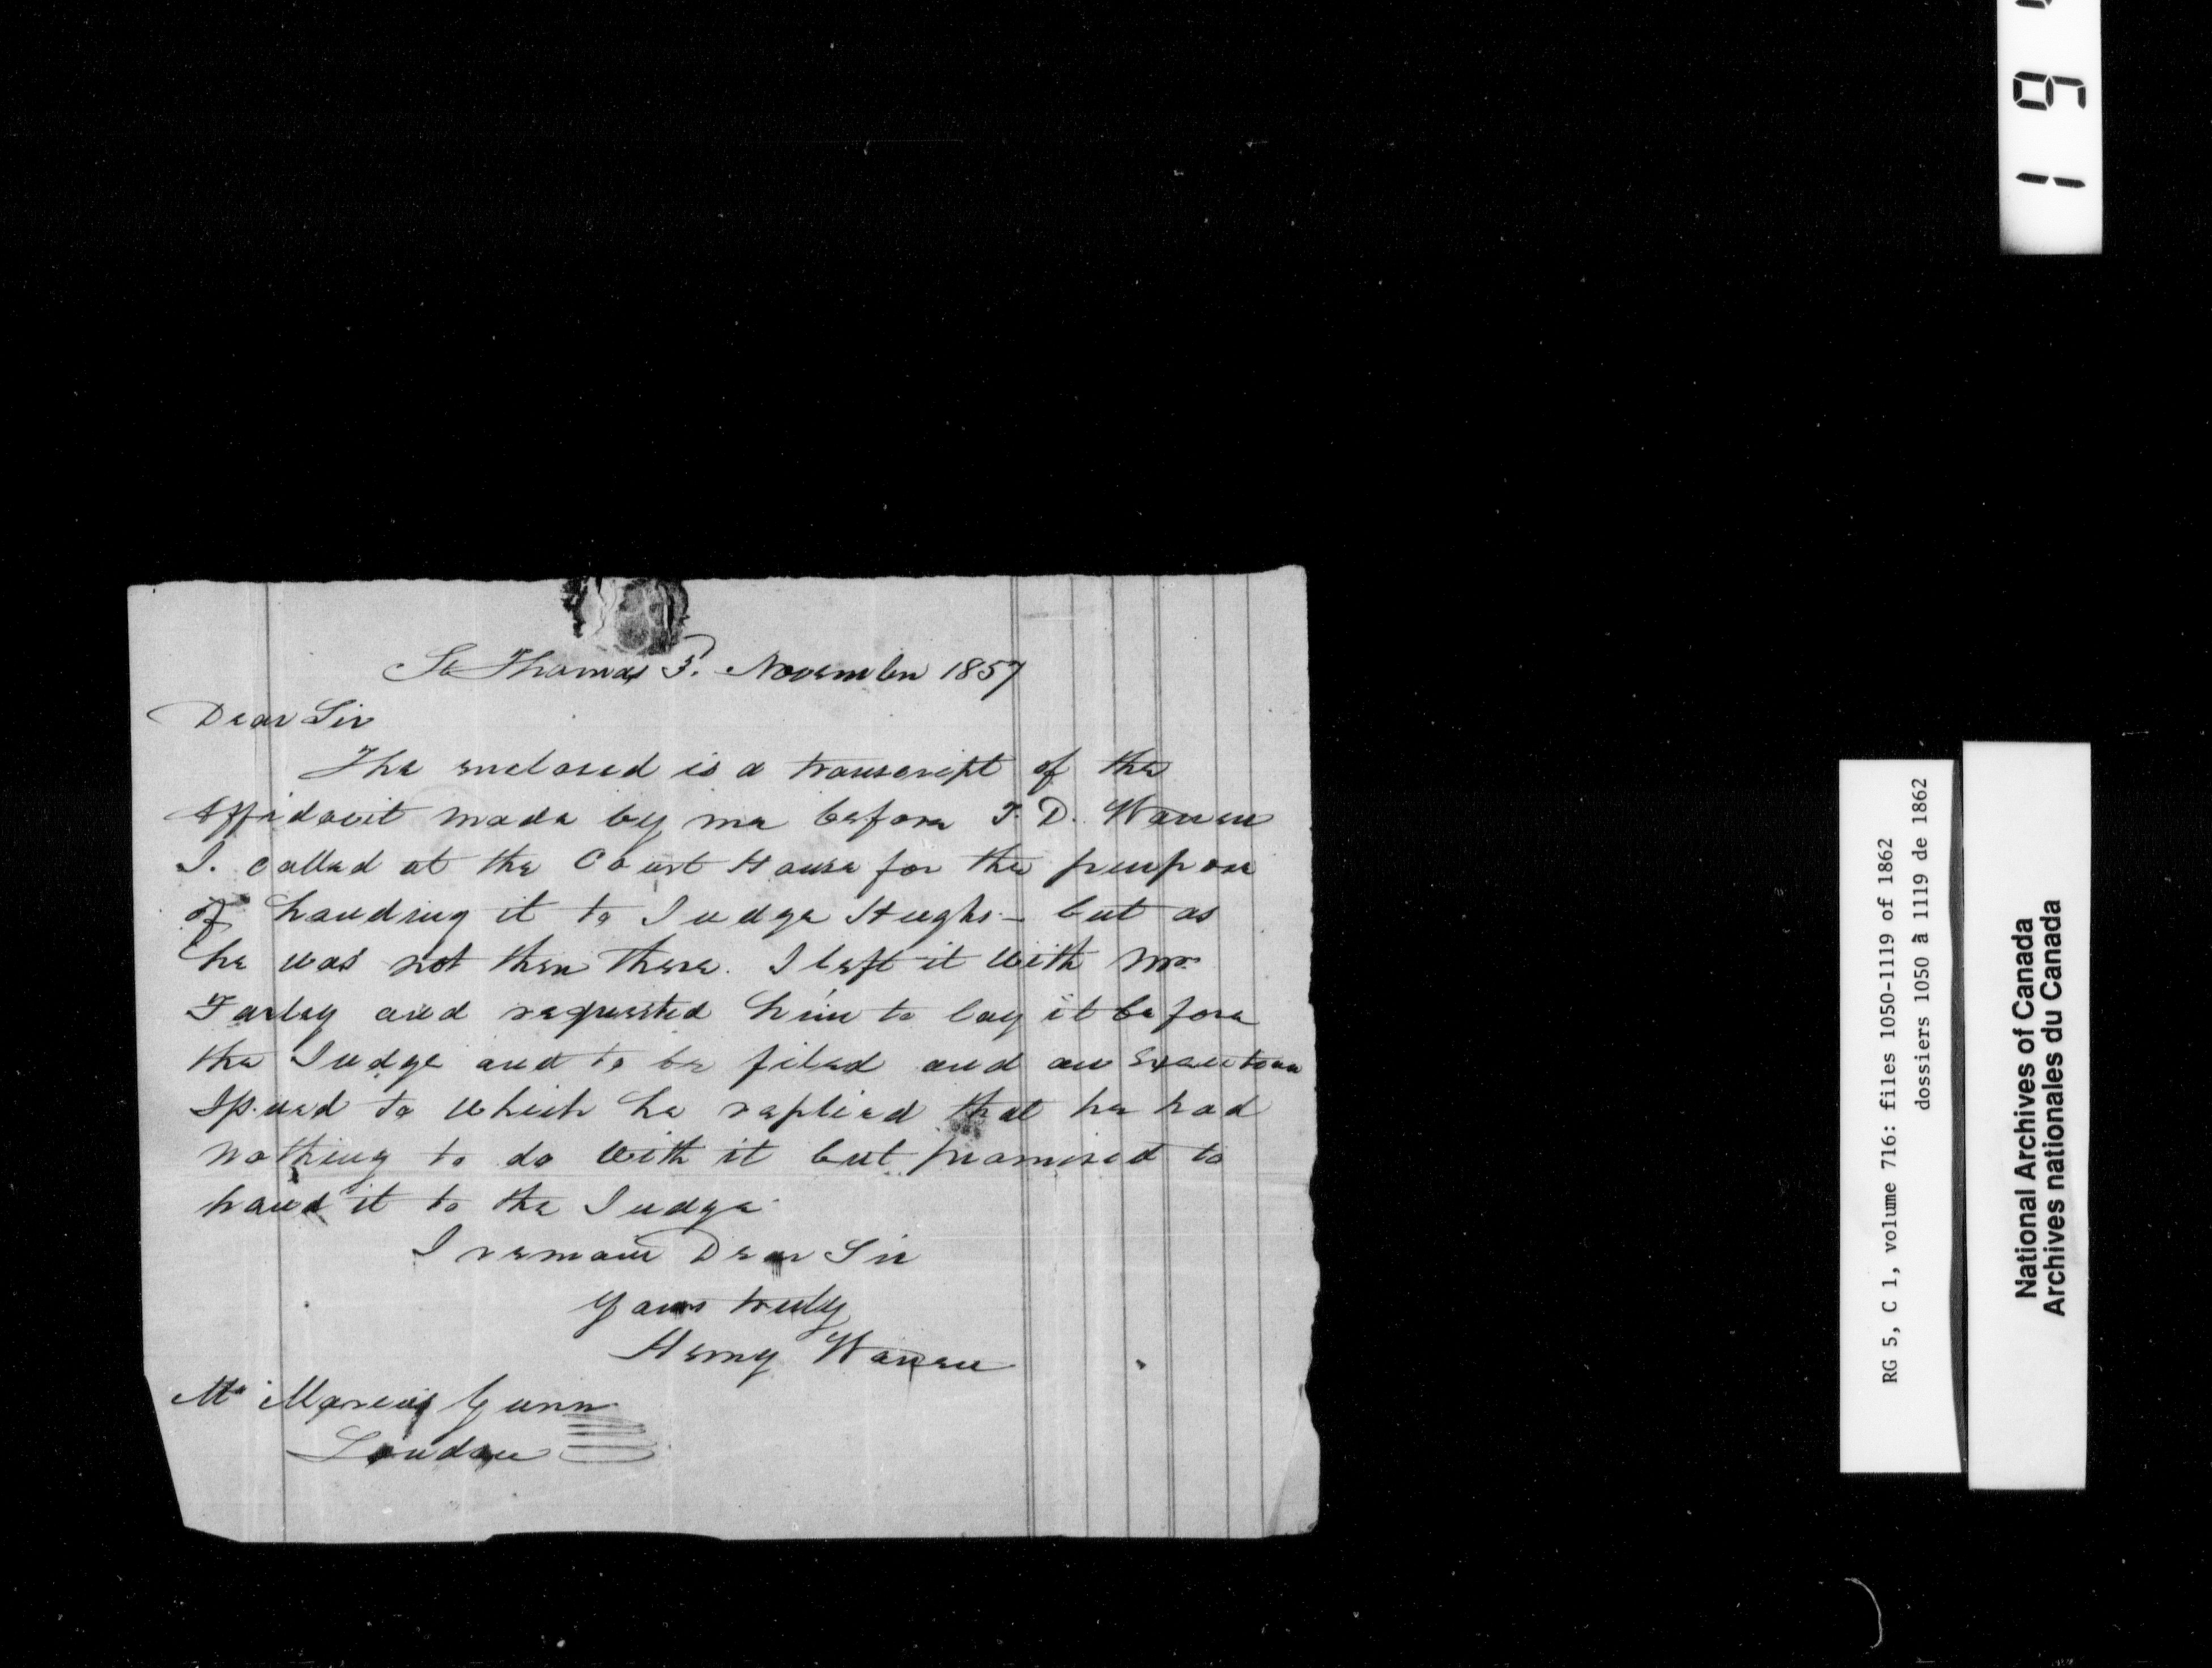 St Thomas 5. November 1857
Dear Sir
The enclosed is a transcript of the
Affidavit made by me before T. D. Warren
I. called at the Court House for the purpose
of handing it to Judge Hughs - but as
he was not then there. I left it with Mr
Farley and requested him to lay it before
the Judge and to be filed and an
Issued to which he replied that he had
nothing to do with it but promised to
hand it to the Judge
I remain Dear Sir
Yours truly
Henry Warren
Mr Marcus Gunn
London
RG 5, C 1, volume 716: files 1050-1119 of 1862
dossiers 1050 à 1119 de 1862
National Archives of Canada
Archives nationales du Canada